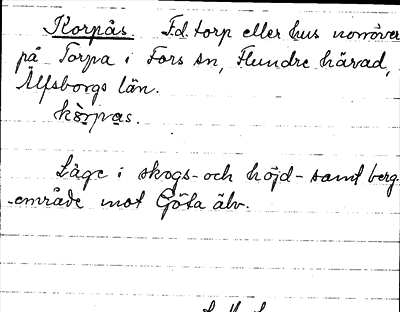 Korpås. F.d. torp eller hus norröver
på Torpa i Fors sn, Flundre härad,
Älfsborgs län.
kòrpas.
Läge i skogs- och höjd- samt berg
-område mot Göta älv.